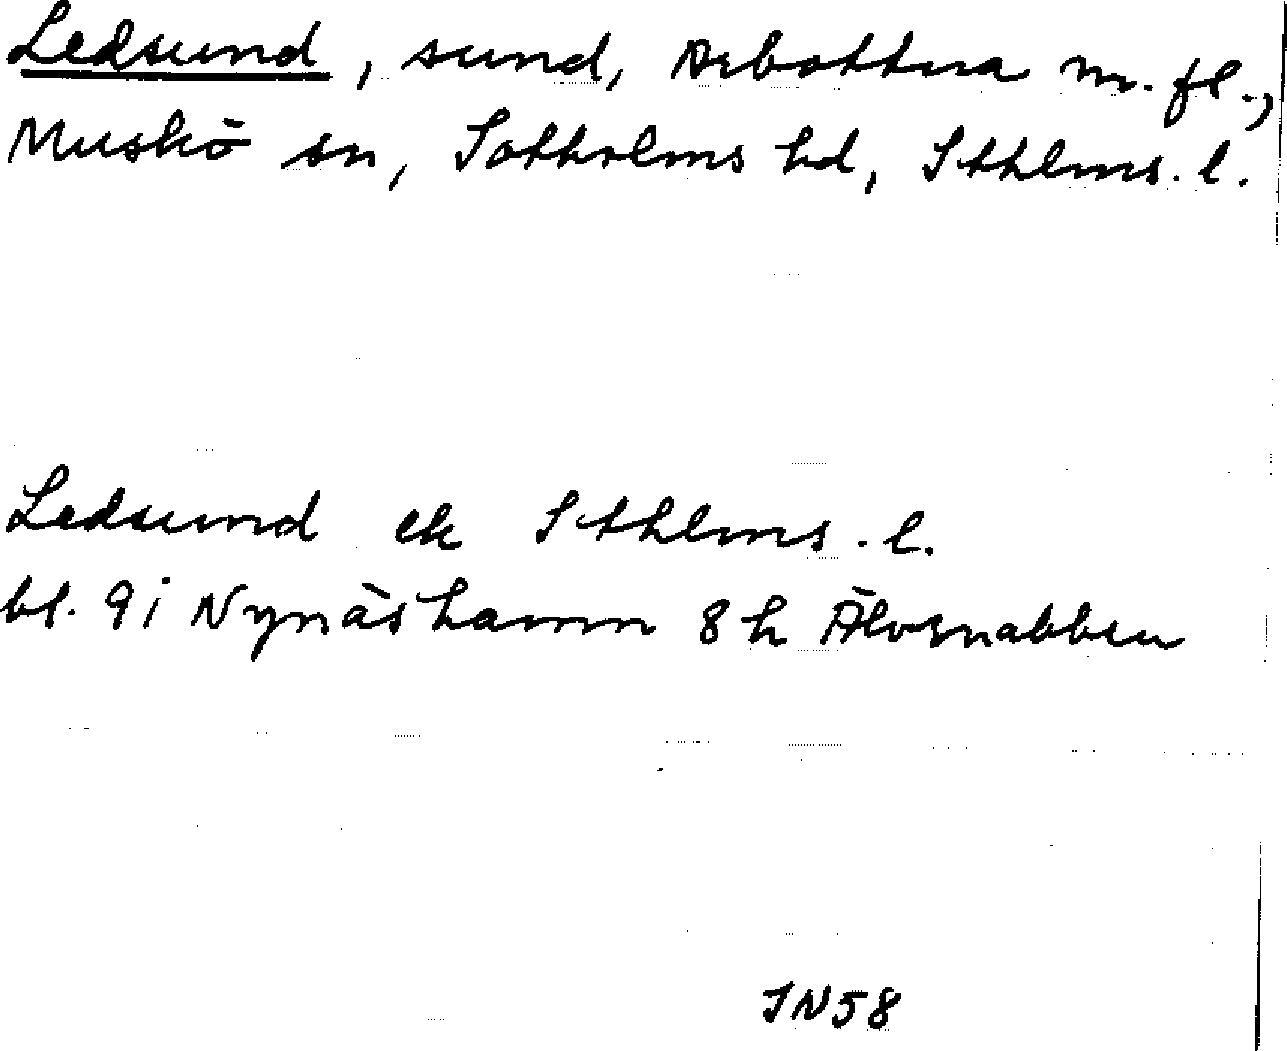 Ledsund, sund, Arbottna m. fl.,
Muskö sn, Sotholms hd, Sthlms. l.
Ledsund ek Sthlms. l.
bl. 9 i Nynäshamn 8h Älvsnabben
JN58